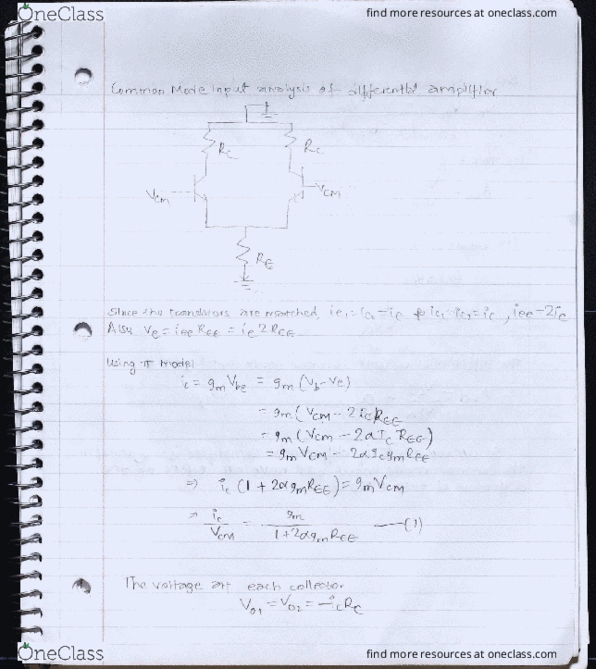 OneClass
find more resources at oneclass.com
Common Mode Input analysis of differential amplifier
RC
RC
VCM
VCM
RE
Since the transistors are matched, ie1 = ie2 = ie & ic1 = ic2 = ic, iee = 2ie
Also Ve = iee REE = ie 2REE
Using π model
ic = gm Vbe = gm (Vb - Ve)
= gm (VCM - 2ie REE
= gm (VCM - 2α Ic REE)
= gm VCM - 2α Ic gm REE
⇒ ic (1 + 2α gm REE) = gm VCM
⇒ ic / VCM = gm / 1 + 2α gm REE —(1)
The voltage at each collector
Vo1 = Vo2 = -ic RC
OneClass
find more resources at oneclass.com